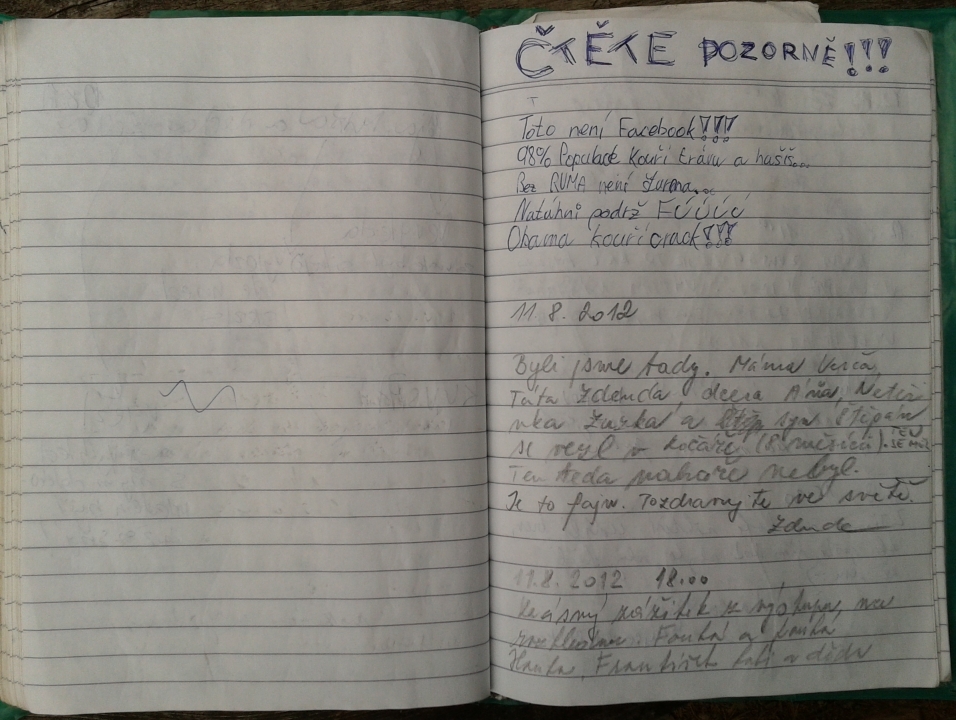 ČTĚTE POZORNĚ!!!
Toto není Facebook!!!
98% Populace kouří trávu a hašiš...
Bez RUMA není žurma...
Natáhni podrž FÚÚÚÚ
Obama kouří crack!!!
11. 8. 2012
Byli jsme tady. Máma Verča,
Táta Zdenda, dcera Áňa, Neteři
nka Zuzka a syn Štěpán
se vezl v kočáře (8 měsíců).
Ten teda nahoře nebyl.
Je to fajn. Pozdravujte ve světě.
Zdenda
11.8. 2012 18.00
Krásný zážitek z výstupu, na
Fouká a
Hanka, František a děda